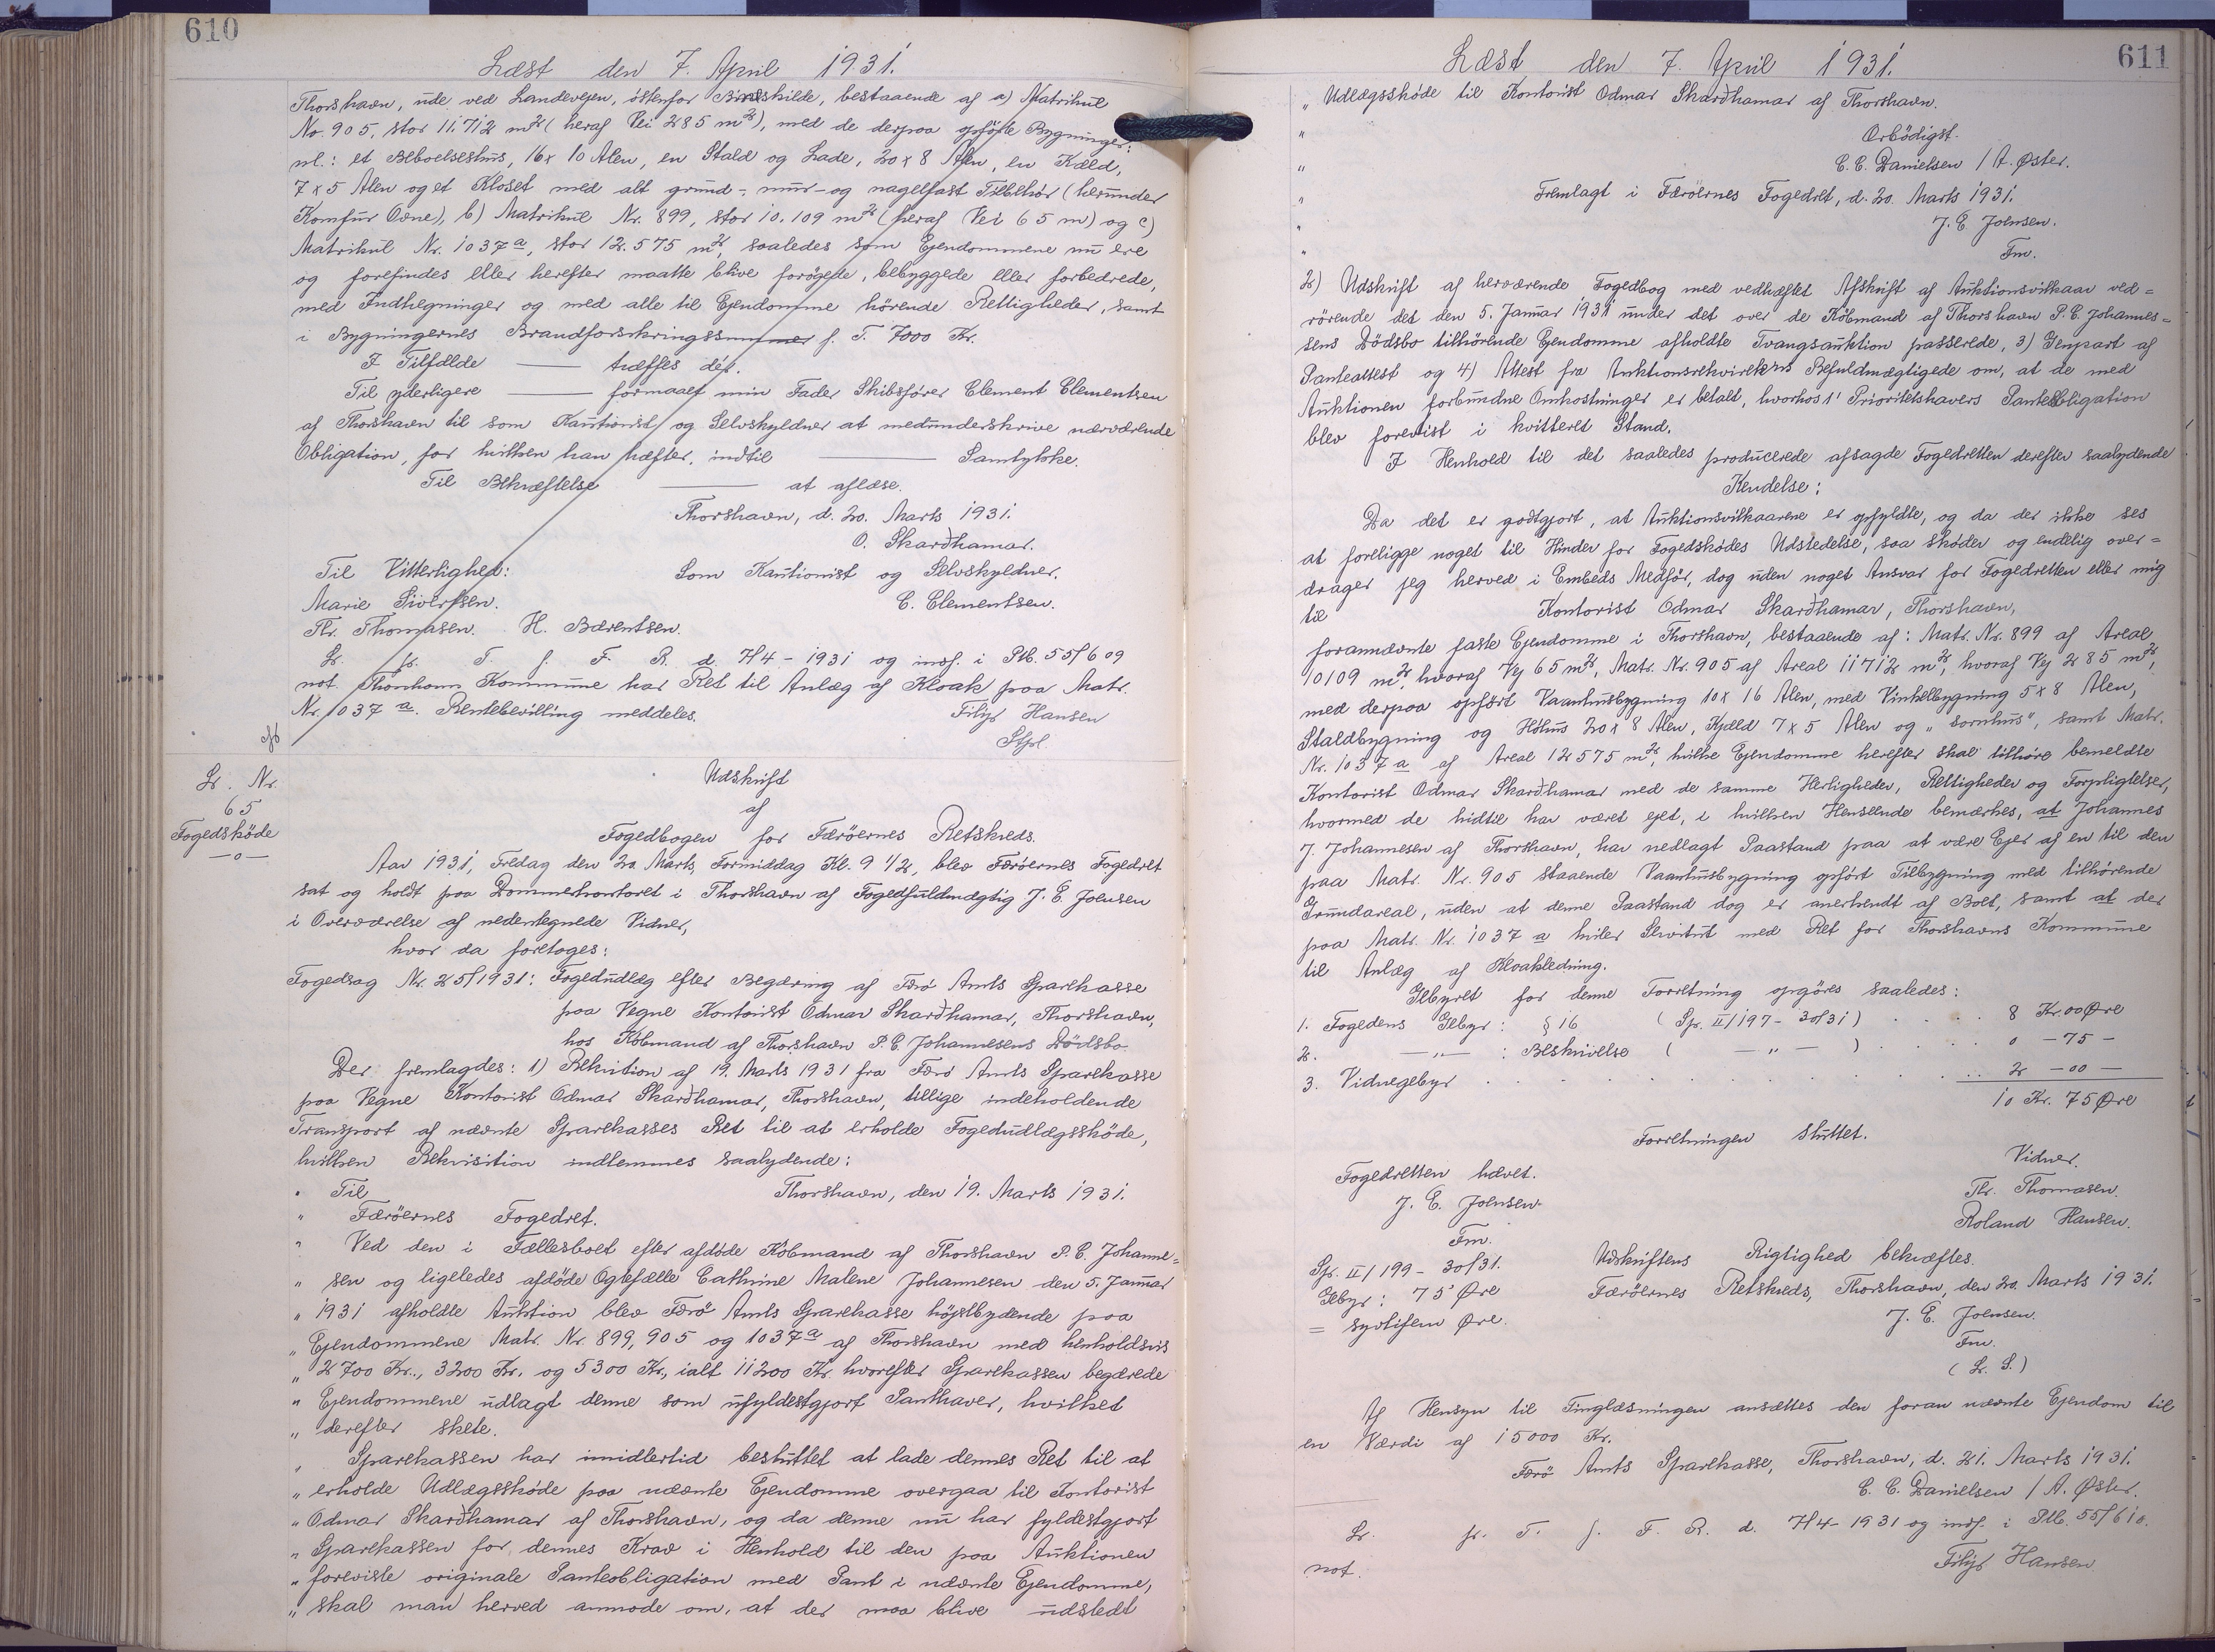 610
Læst den 7. April 1931.
Thorshavn, ude ved Landevejen, östenfor Bindskilde, bestaaende af a) Matrikul
No. 905, stor 11.712 m² (heraf Vei 285 m²), med de derpaa opförte Bygninger:
nl.: et Beboelseshus, 16 x 10 Alen, en Stald og Lade, 20 x 8 Alen, en Kæld,
7 x 5 Alen og et Kloset med alt grund-, mur- og nagelfast Tilbehör (herunder
Komfur Ovne), b) Matrikul Nr. 899, stor 10.109 m² (heraf Vei 65 m) og c)
Matrikul Nr. 1037 a, stor 12.575 m², saaledes som Ejendommene nu ere
og forefindes eller herefter maatte blive forögede, bebyggede eller forbedrede,
med Indhegninger og med alle til Ejendomme hörende Rettigheder, samt
i Bygningernes Brandforsikringssummer f. T. 7000 Kr.
I Tilfælde —— træffes dér.
Til yderligere —— formaaet min Fader Skibsförer Clement Clementsen
af Thorshavn til som Kautionist og Selvskyldner at medunderskrive nærværende
Obligation, for hvilken han hæfter, indtil —— Samtykke.
Til Bekræftelse —— at aflæse.
Thorshavn, d. 20. Marts 1931.
O. Skarðhamar.
Til Vitterlighed: Som Kautionist og Selvskyldner.
Marie Sivertsen. C. Clementsen.
Thr. Thomasen. H. Bærentsen.
Lr. fr. T. f. F. R. d. 7/4 - 1931 og indf. i Ptb. 55/609
not. Thorshavns Kommune har Ret til Anlæg af Kloak paa Matr.
Nr. 1037 a. Rentebevilling meddeles.
Filip Hansen
Stfd.
Lr. Nr.
65
Fogedsköde
—o—
Udskrift
af
Fogedbogen for Færöernes Retskreds.
Aar 1931, Fredag den 20. Marts, Formiddag Kl. 9 1/2, blev Færöernes Fogedret
sat og holdt paa Dommerkontoret i Thorshavn af Fogedfuldmægtig J. E. Joensen
i Overværelse af nedentegnede Vidner,
hvor da foretoges:
Fogedsag Nr. 25/1931: Fogedudlæg efter Begæring af Færö Amts Sparekasse
paa Vegne Kontorist Odmar Skarðhamar, Thorshavn,
hos Köbmand af Thorshavn P. C. Johannesens Dödsbo
Der fremlagdes: 1) Rekvisition af 19. Marts 1931 fra Færö Amts Sparekasse
paa Vegne Kontorist Odmar Skarðhamar, Thorshavn, tillige indeholdende
Transport af nævnte Sparekasses Ret til at erholde Fogedudlægssköde,
hvilken Rekvisition indlemmes saalydende:
" Til Thorshavn, den 19. Marts 1931.
" Færöernes Fogedret.
" Ved den i Fællesboet efter afdöde Köbmand af Thorshavn P. C. Johanne=
" sen og ligeledes afdöde Ægtefælle Cathrine Malene Johannesen den 5. Januar
" 1931 afholdte Auktion blev Færö Amts Sparekasse höjstbydende paa
" Ejendommene Matr. Nr. 899, 905 og 1037 a af Thorshavn med henholdsvis
" 2700 Kr., 3200 Kr. og 5300 Kr., ialt 11200 Kr. hvorefter Sparekassen begærede
" Ejendommene udlagt denne som ufyldestgjort Panthaver, hvilket
" derefter skete.
" Sparekassen har imidlertid besluttet at lade dennes Ret til at
" erholde Udlægssköde paa nævnte Ejendomme overgaa til Kontorist
" Odmar Skarðhamar af Thorshavn, og da denne nu har fyldestgjort
" Sparekassen for dennes Krav i Henhold til den paa Auktionen
" foreviste originale Panteobligation med Pant i nævnte Ejendomme,
" skal man herved anmode om, at der maa blive udstedt
611
Læst den 7. April 1931.
" Udlægssköde til Kontorist Odmar Skarðhamar af Thorshavn.
" Ærbödigst.
" C. C. Danielsen / A. Øster.
" Fremlagt i Færöernes Fogedret, d. 20. Marts 1931.
" J. E. Joensen.
" Fm.
2) Udskrift af herværende Fogedbog med vedhæftet Afskrift af Auktionsvilkaar ved=
rörende det den 5. Januar 1931 under det over de Köbmand af Thorshavn P. C. Johannes=
sens Dödsbo tilhörende Ejendomme afholdte Tvangsauktion passerede, 3) Genpart af
Panteattest og 4) Attest fra Auktionsrekvirentens Befuldmægtigede om, at de med
Auktionen forbundne Omkostninger er betalt, hvorhos 1' Prioritetshavers Panteobligation
blev forevist i kvitteret Stand.
I Henhold til det saaledes producerede afsagde Fogedretten derefter saalydende
Kendelse:
Da det er godtgjort, at Auktionsvilkaarene er opfyldte, og da der ikke ses
at foreligge noget til Hinder for Fogedsködes Udstedelse, saa sköder og endelig over=
drager jeg herved i Embeds Medför, dog uden noget Ansvar for Fogedretten eller mig
til Kontorist Odmar Skarðhamar, Thorshavn,
forannævnte faste Ejendomme i Thorshavn, bestaaende af: Matr. Nr. 899 af Areal
10109 m², hvoraf Vej 65 m², Matr. Nr. 905 af Areal 11712 m², hvoraf Vej 285 m²,
med derpaa opfört Vaaningsbygning 10 x 16 Alen, med Vinkelbygning 5 x 8 Alen,
Staldbygning og Höhus 20 x 8 Alen, Kjæld 7 x 5 Alen og „sornhus", samt Matr.
Nr. 1037 a af Areal 12575 m², hvilke Ejendomme herefter skal tilhöre bemeldte
Kontorist Odmar Skarðhamar med de samme Herligheder, Rettigheder og Forpligtelser,
hvormed de hidtil har været ejet, i hvilken Henseende bemærkes, at Johannes
J. Johannesen af Thorshavn, har nedlagt Paastand paa at være Ejer af en til den
paa Matr. Nr. 905 staaende Vaaningsbygning opfört Tilbygning med tilhörende
Grundareal, uden at denne Paastand dog er anerkendt af Boet, samt at der
paa Matr. Nr. 1037 a hviler Servitut med Ret for Thorshavns Kommune
til Anlæg af Kloakledning.
Gebyret for denne Forretning opgöres saaledes:
1. Fogedens Gebyr: § 16 (Spr. II/197 - 30/31) . . . 8 Kr. 00 Øre
2. —"— : Beskrivelse ( —"— ) . . . 0 - 75 -
3. Vidnegebyr . . . 2 - 00 —
10 Kr. 75 Øre
Forretningen sluttet.
Fogedretten hævet. Vidner.
J. E. Joensen. Thr. Thomasen.
Fm. Roland Hansen.
Spr. II/199 - 30/31. Udskriftens Rigtighed bekræftes.
Gebyr: 75 Øre Færöernes Retskreds, Thorshavn, den 20. Marts 1931.
= syvtifem Øre. J. E. Joensen.
Fm.
(L. S.)
Af Hensyn til Tinglæsningen ansættes den foran nævnte Ejendom til
en Værdi af 15000 Kr.
Færö Amts Sparekasse, Thorshavn, d. 21. Marts 1931.
C. C. Danielsen / A. Øster.
Lr. fr. T. f. F. R. d. 7/4 - 1931 og indf. i Ptb. 55/610.
not. Filip Hansen